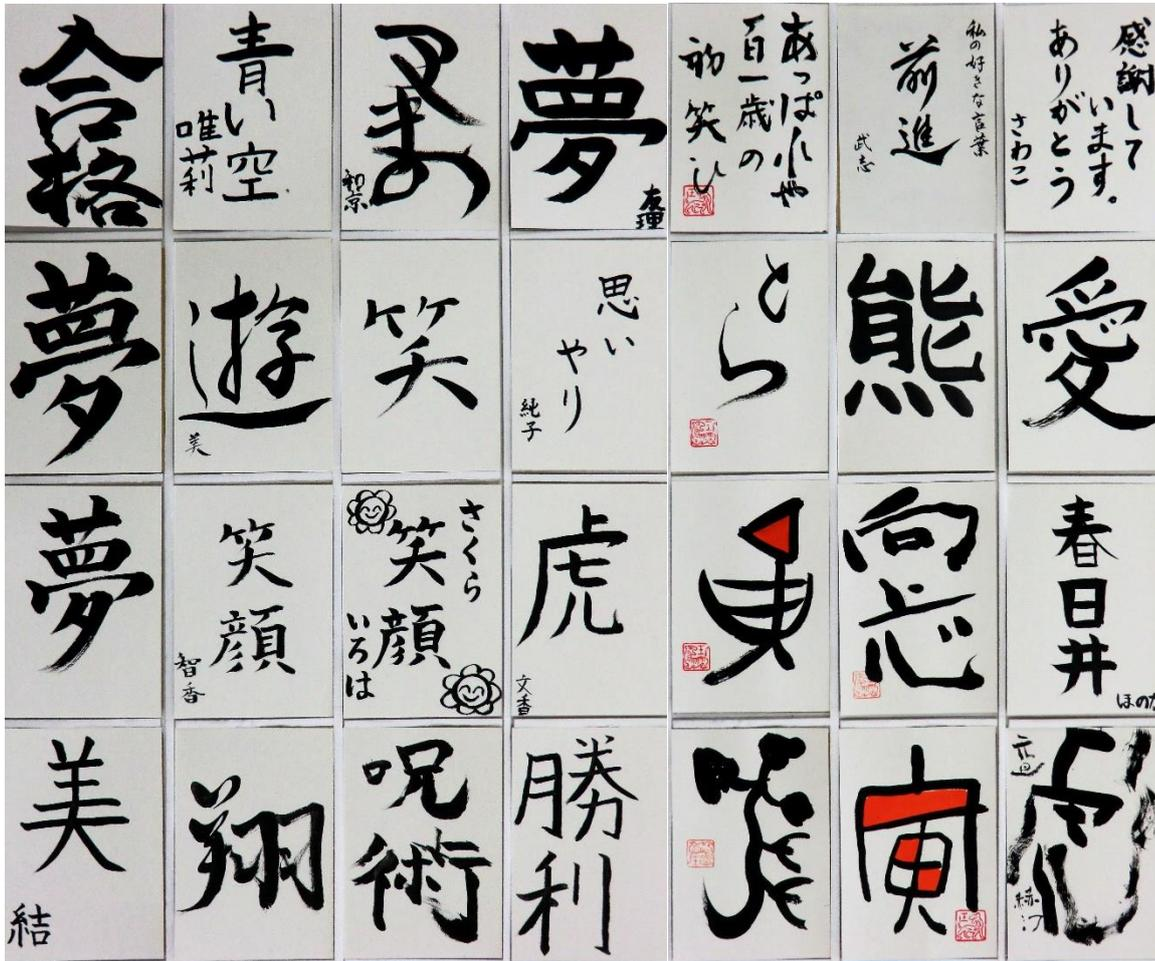 合格
青い空
唯莉
和京
夢
友理
あっぱれや
百一歳の
初笑ひ
私の好きな言葉
前進
武志
感謝して
います。
ありがとう
さわこ
夢
遊
美
笑
思い
やり
純子
とら
熊
愛
夢
笑顔
智香
さくら
笑顔
いろは
虎
文香
向心
春日井
ほのか
美
結
翔
呪術
勝利
寅
虎